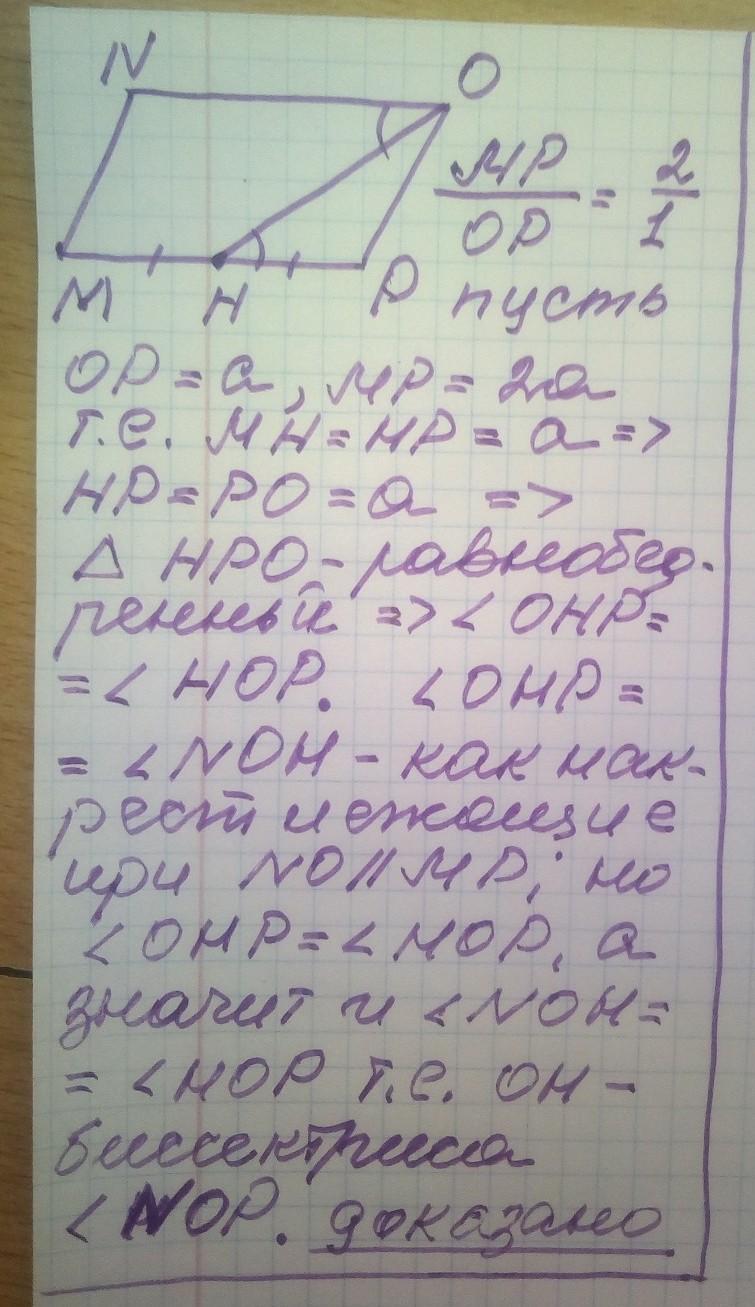 N
O
MP/OP = 2/1
M H P пусть
OP = a, MP = 2a
т.е. MH = HP = a =>
HP = PO = a =>
Δ HPO - равнобед-
ренный => < OHP =
= < HOP. < OHP =
= < NOH - как нак-
рест лежащие
при NO || MP; но
< OHP = < HOP, а
значит и < NOH =
= < HOP т.е. OH -
биссектриса
< NOP. доказано